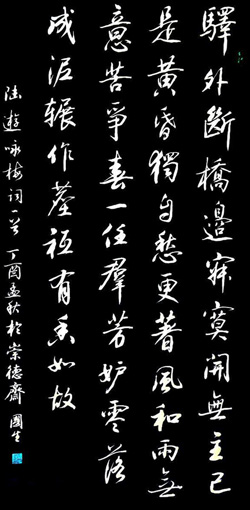 驛外斷橋邊寂寞開無主已
是黃昏獨自愁更著風和雨無
意苦爭春一任羣芳妒零落
成泥輾作塵祇有香如故
陸遊咏梅詞一首 丁酉孟秋於崇德齋 國生